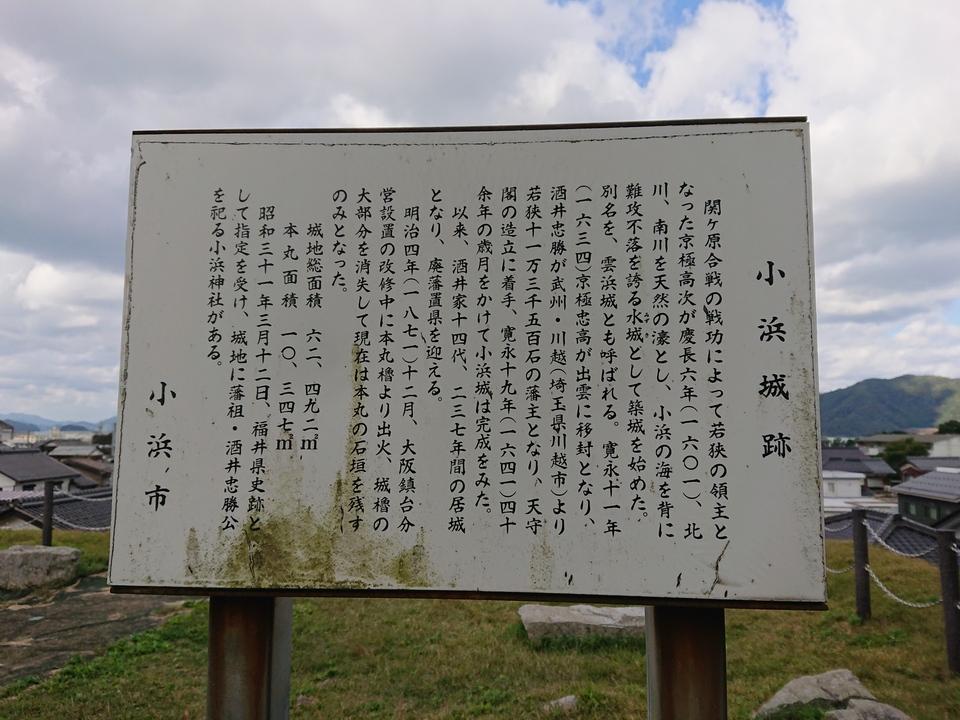 小浜城跡
関ヶ原合戦の戦功によって若狭の領主と
なった京極高次が慶長六年(一六〇一)、北
川、南川を天然の濠とし、小浜の海を背に
難攻不落を誇る水城として築城を始めた。
別名を、雲浜城とも呼ばれる。寛永十一年
(一六三四)京極忠高が出雲に移封となり、
酒井忠勝が武州・川越(埼玉県川越市)より
若狭十一万三千五百石の藩主となり、天守
閣の造立に着手、寛永十九年(一六四一)四十
余年の歳月をかけて小浜城は完成をみた。
以来、酒井家十四代、二三七年間の居城
となり、廃藩置県を迎える。
明治四年(一八七一)十二月、大阪鎮台分
営設置の改修中に本丸櫓より出火、城櫓の
大部分を消失して現在は本丸の石垣を残す
のみとなった。
城地総面積 六二、四九二㎡
本丸面積 一〇、三四七㎡
昭和三十一年三月十二日、福井県史跡と
して指定を受け、城地に藩祖・酒井忠勝公
を祀る小浜神社がある。
小浜市